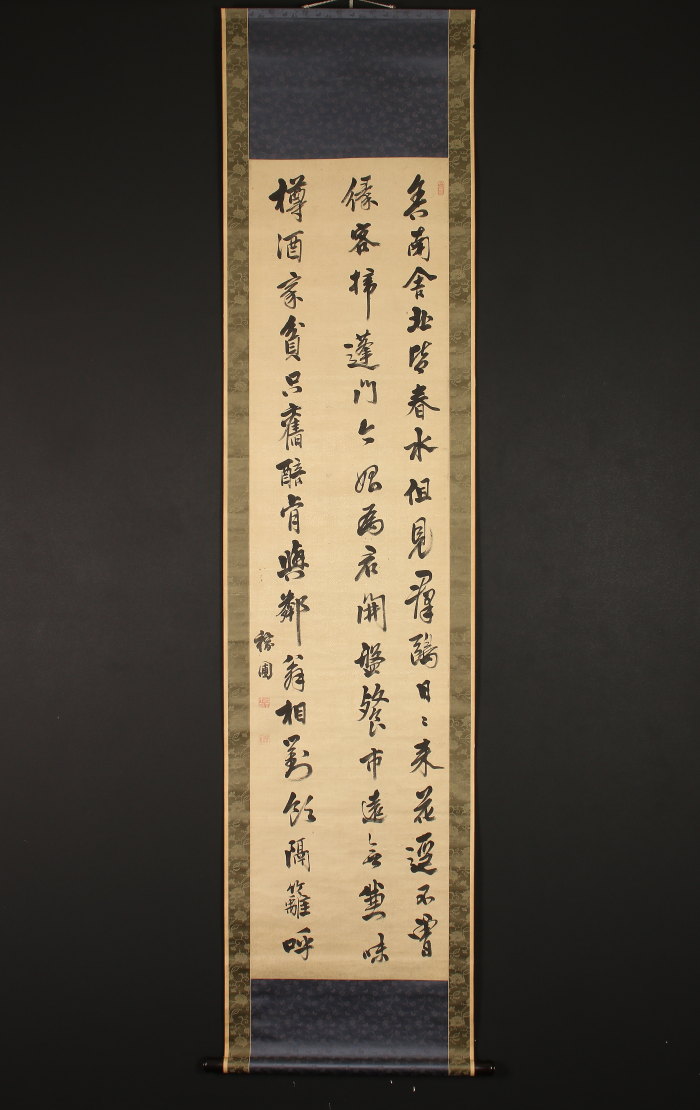 舍南舍北皆春水但見群鷗日〻来花逕不曾
緣客掃蓬門今始為君開盤餐市遠無兼味
樽酒家貧只舊醅肯與鄰翁相對飲隔籬呼
稼圃